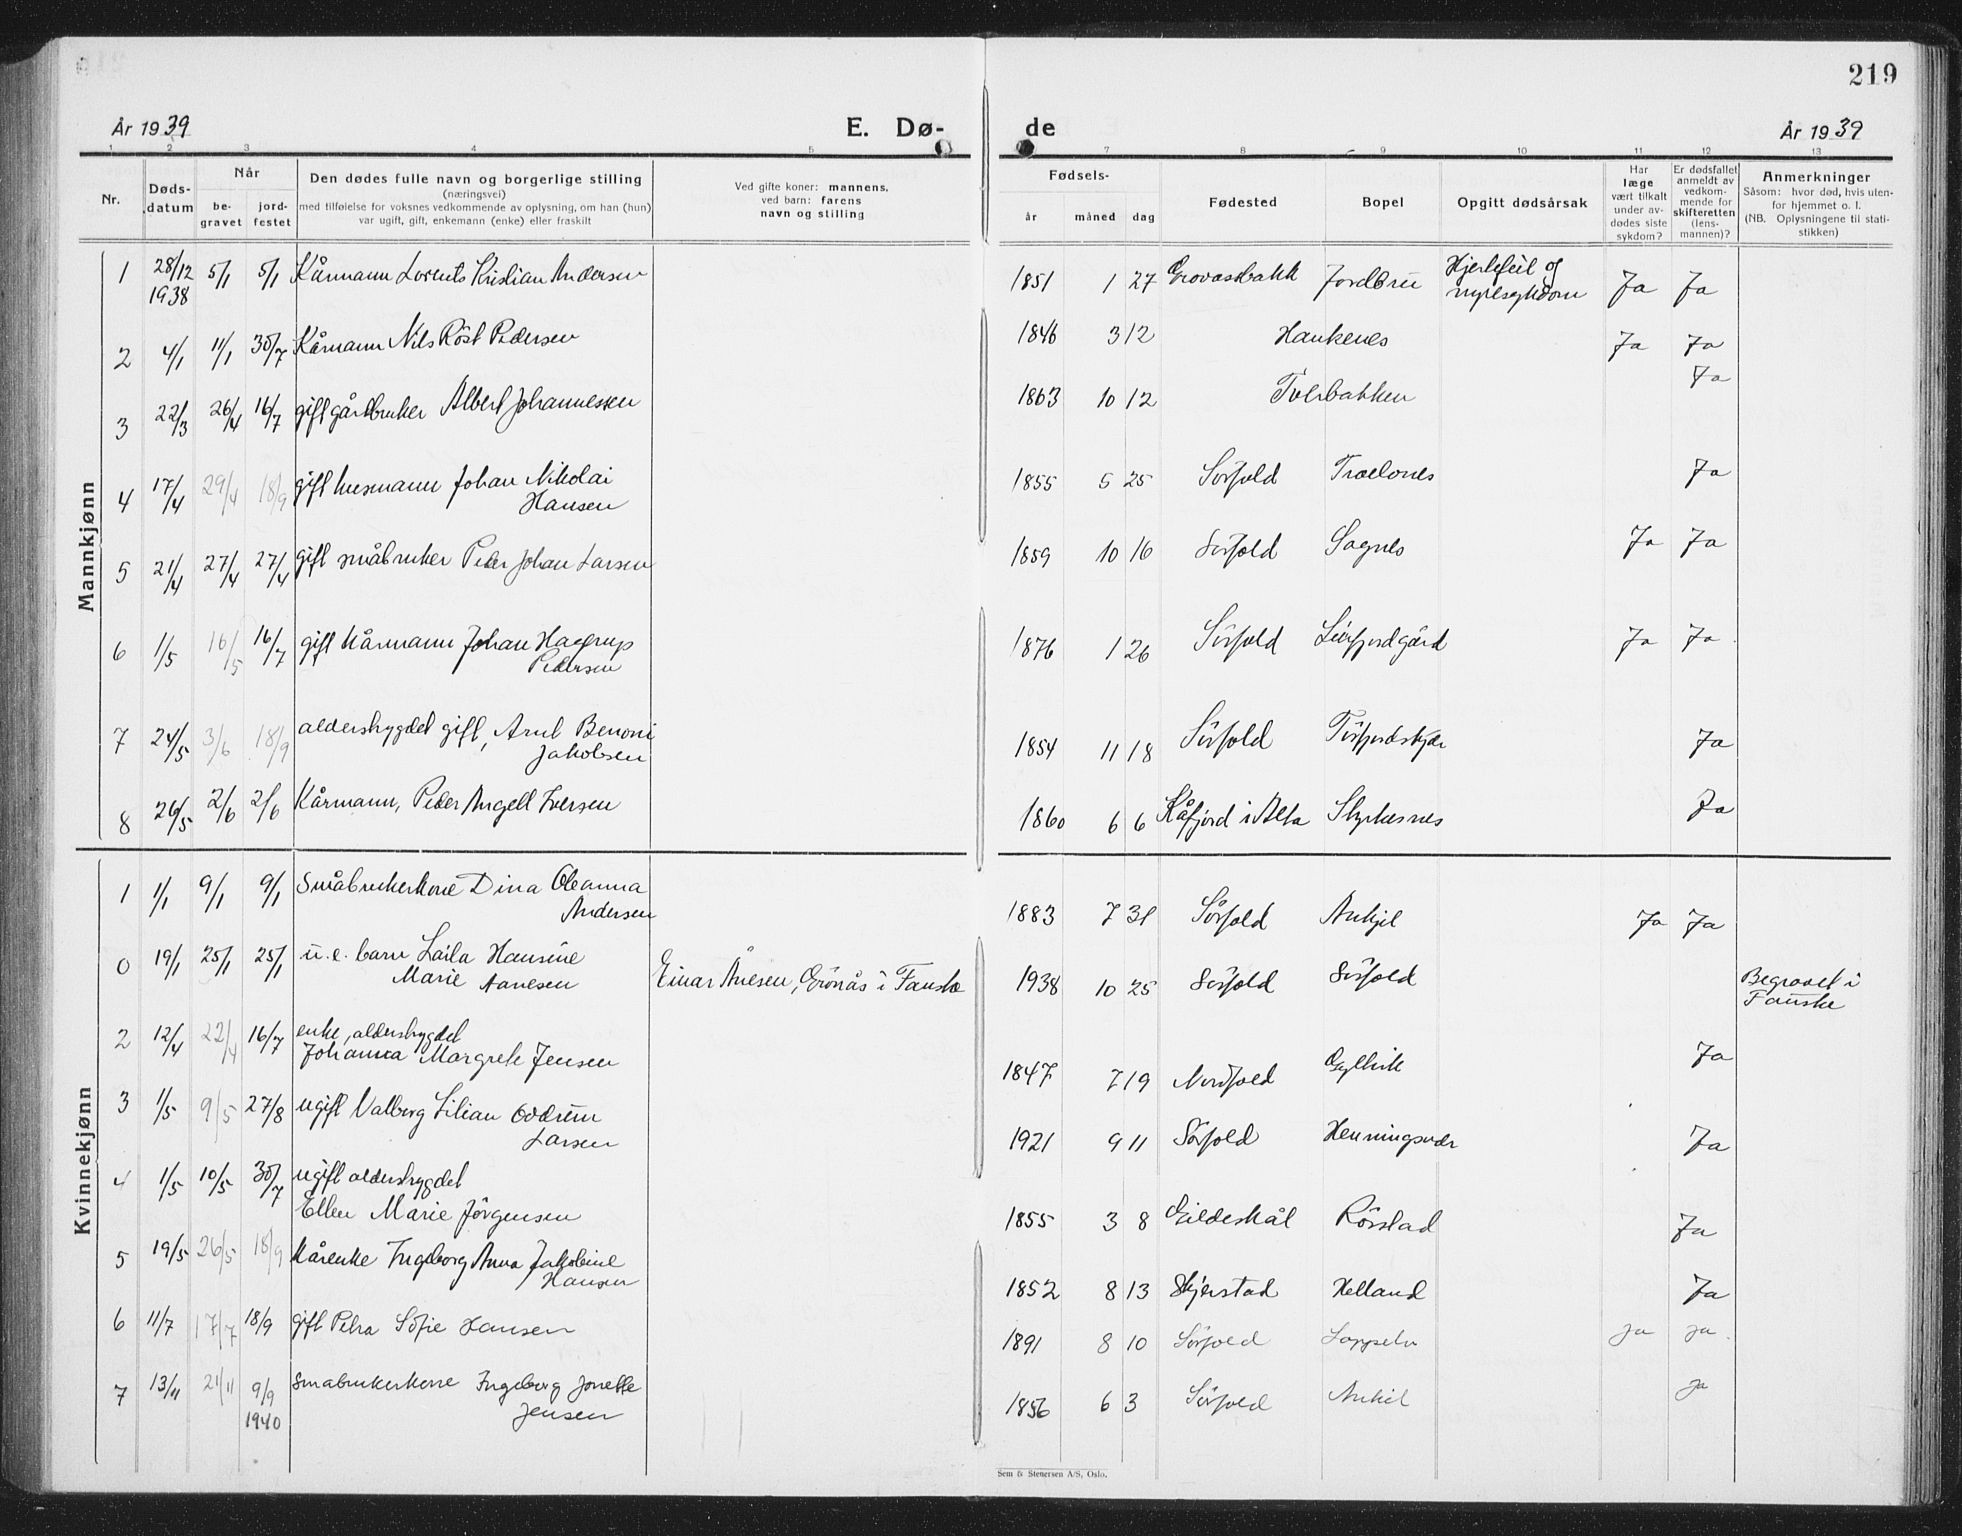 219
År 1939
E. Dø-
de
År 1939
1 2 3 4 5 7 8 9 10 11 12 13
Nr.
Døds-
datum
Når
be-
gravet
jord-
festet
Den dødes fulle navn og borgerlige stilling
(næringsvei)
med tilføielse for voksnes vedkommende av oplysning, om han (hun)
var ugift, gift, enkemann (enke) eller fraskilt
Ved gifte koner: mannens,
ved barn: farens
navn og stilling
Fødsels-
år måned dag
Fødested
Bopel
Opgitt dødsårsak
Har
læge
vært tilkalt
under av-
dødes siste
sykdom?
Er dødsfallet
anmeldt av
vedkom-
mende for
skifteretten
(lens-
mannen)?
Anmerkninger
Såsom: hvor død, hvis uten-
for hjemmet o. l.
(NB. Oplysningene til stati-
stikken)
Mannkjønn
1 28/12 1938 5/1 5/1 Kårmann Lorents Kristian Andersen 1851 1 27 Grovasbakk Jordbru Hjertefeil og
nyresykdom Ja Ja
2 4/1 11/1 30/7 Kårmann Nils Röst Pedersen 1846 3 12 Haukenes Ja Ja
3 22/3 26/4 16/7 gift gårdbruker Albert Johannessen 1863 10 12 Tverbakken Ja
4 17/4 29/4 18/9 gift husmann Johan Nikolai
Hansen 1855 5 25 Sörfold Trælones Ja
5 21/4 27/4 27/4 gift småbruker Peder Johan Larsen 1859 10 16 Sörfold Sagnes Ja Ja
6 1/5 16/5 16/7 gift kårmann Johan Hagerup
Pedersen 1876 1 26 Sörfold Leirfjordgård Ja Ja
7 24/5 3/6 18/9 alderstrygdet gift, Arnt Benoni
Jakobsen 1854 11 18 Sörfold Ja
8 26/5 2/6 2/6 Kårmann, Peder Angell Iversen 1860 6 6 Kåfjord i Alta Styrkesnes Ja
Kvinnekjønn
1 1/1 9/1 9/1 Småbrukerkone Dina Oleanna
Andersen 1883 7 31 Sörfold Ankjil Ja Ja
0 19/1 25/1 25/1 u.e. barn Laila Hansine
Marie Aanesen Einar Ånesen, Grönås i Fauske 1938 10 25 Sörfold Sörfold Begravet i
Fauske
2 12/4 22/4 16/7 enke, alderstrygdet
Johanna Margrete Jensen 1847 7 19 Nordfold Gyltvik Ja
3 1/5 9/5 27/8 ugift Valborg Lilian
Larsen 1921 9 11 Sörfold Henningsvær Ja
4 1/5 10/5 30/7 ugift alderstrygdet
Ellen Marie Jörgensen 1855 3 8 Gildeskål Rösstad Ja
5 19/5 26/5 18/9 Kårenke Ingeborg Anna Jakobine
Hansen 1852 8 13 Skjerstad Helland Ja
6 11/7 17/7 18/9 gift Petra Sofie Hansen 1891 8 10 Sörfold Lappelv Ja Ja
7 13/11 21/11 9/9 1940 Småbrukerkone Ingeborg Jonette
Jensen 1856 6 3 Sörfold Ankil Ja
Sem & Stenersen A/S, Oslo.